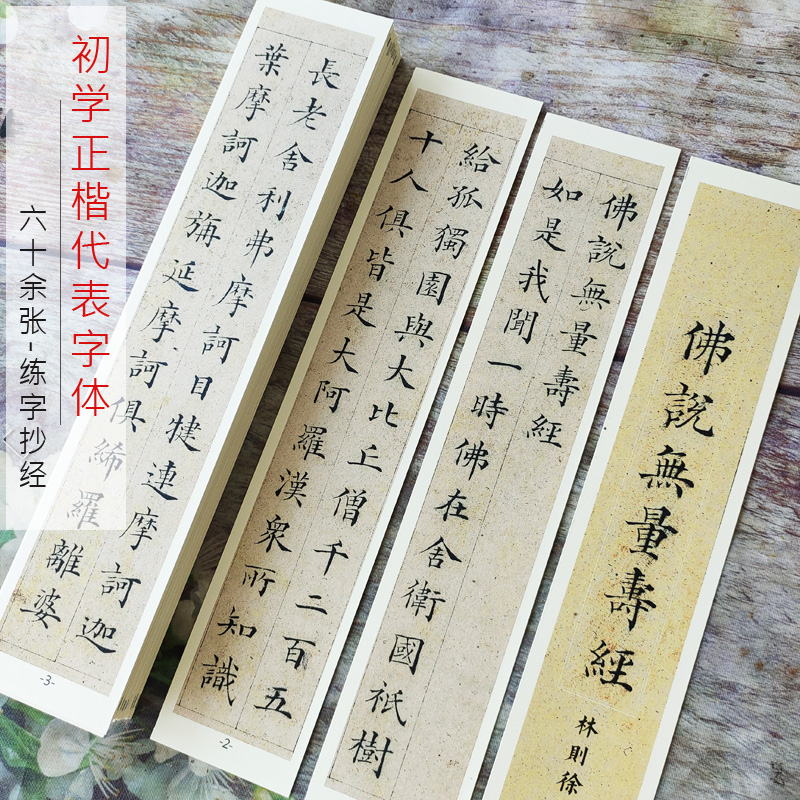 初学正楷代表字体
六十余张-练字抄经
佛說無量壽經
林則徐
佛說無量壽經
如是我聞一時佛在舍衛國祇樹
給孤獨園與大比丘僧千二百五
十人俱皆是大阿羅漢衆所知識
-2-
長老舍利弗摩訶目犍連摩訶迦
葉摩訶迦旃延摩訶俱絺羅離婆
-3-